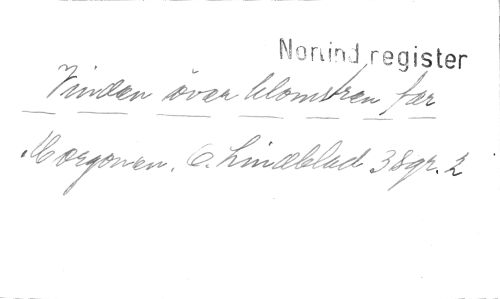 Nonind register
Vinden över blomstren far
Morgonen. O. Lindblad 3 Sgr. 2